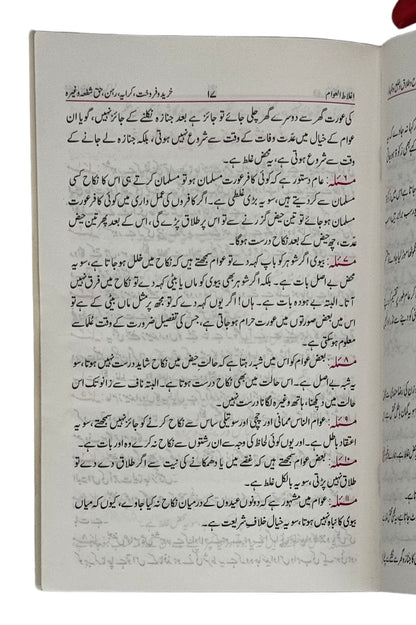 اغلاط العوام ۱۷ خرید و فروخت، کرایہ، رہن، حق شفعہ وغیرہ
کی عورت گھر سے دوسرے گھر چلی جائے تو جائز ہے بعد جنازہ نکلنے کے جائز نہیں، گویا ان
عوام کے خیال میں عدت وفات کے وقت سے شروع نہیں ہوتی، بلکہ جنازہ لے جانے کے
وقت سے شروع ہوتی ہے، یہ محض غلط ہے۔
مسئلہ ۶: عام دستور ہے کہ کوئی کافر عورت مسلمان ہو تو مسلمان کرتے ہی اس کا نکاح کسی
مسلمان سے کردیتے ہیں، سو یہ بڑی غلطی ہے۔ اگر کافروں کی عمل داری میں کوئی کافر عورت
مسلمان ہو جائے تو تین حیض گزرنے سے تو اس پر طلاق پڑے گی، اس کے بعد پھر تین حیض
عدت، چھ حیض کے بعد نکاح درست ہوگا۔
مسئلہ ۷: بیوی اگر شوہر کو باپ کہہ دے تو عوام سمجھتے ہیں کہ نکاح میں خلل ہو جاتا ہے، سو یہ
محض بے اصل بات ہے۔ بلکہ اگر شوہر بھی بیوی کو یوں کہہ دے کہ تو میری ماں یا بیٹی کے
آتا۔ البتہ بے ہودہ بات ہے۔ ہاں! اگر یوں کہہ دے کہ تو مجھ پر مثل ماں بیٹی کے ہے تو
بعض صورتوں میں عورت حرام ہو جاتی ہے، جس کی تفصیل ضرورت کے وقت علما سے
معلوم ہو سکتی ہے۔
مسئلہ ۸: بعض عوام کو اس میں شبہ رہتا ہے کہ حالت حیض میں نکاح شاید درست نہیں ہوتا، سو
یہ شبہ بے اصل ہے۔ اس حالت میں بھی نکاح درست ہے۔ البتہ ناف سے زانو تک اس
حالت میں دیکھنا، ہاتھ وغیرہ لگانا درست نہیں۔
مسئلہ ۹: عوام الناس ممانی اور چچی اور سوتیلی ساس سے نکاح کرنے کو جائز سمجھتے ہیں، سو یہ
اعتقاد باطل ہے۔ اور یوں کوئی لحاظ کی وجہ سے ان رشتوں سے نکاح نہ کرے وہ اور بات ہے۔
مسئلہ ۱۰: بعض عوام سمجھتے ہیں کہ غصے میں یا دھمکانے کی نیت سے اگر طلاق دے دے تو
طلاق نہیں پڑتی، سو یہ بالکل غلط ہے۔
مسئلہ ۱۱: عوام میں مشہور ہے کہ دونوں عیدوں کے درمیان نکاح نہ کیا جاوے، کیوں کہ میاں
بیوی کا نباہ نہیں ہوتا، سو یہ خیال خلاف شریعت ہے۔